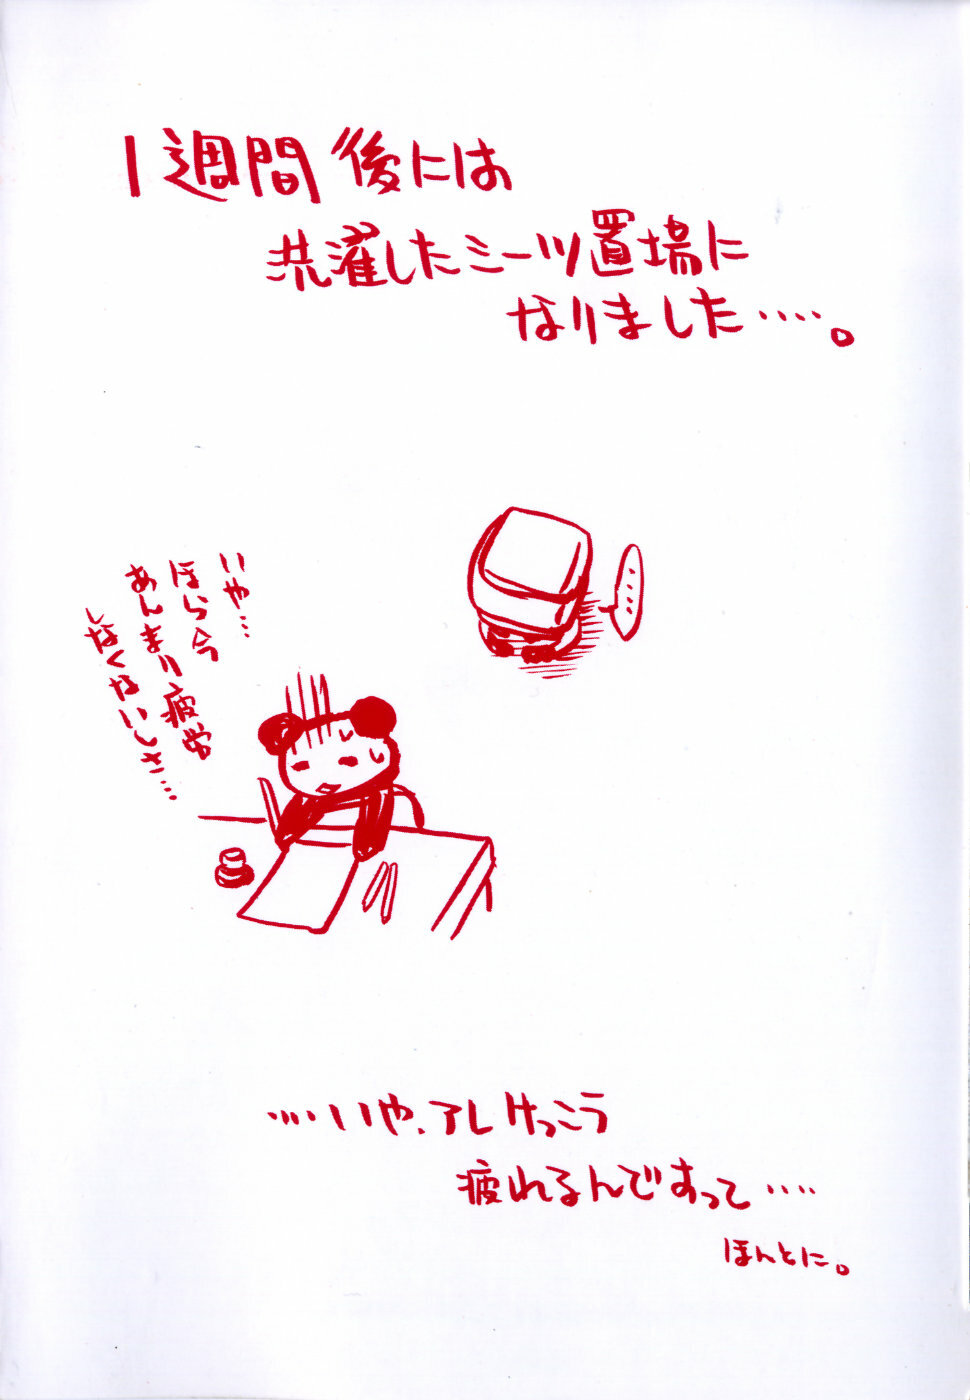 1週間後には
洗濯したシーツ置場に
なりました‥‥。
‥‥‥
いや…
ほら今
あんまり疲労
したくないしさ…
‥‥いや、アレけっこう
疲れるんですって‥‥
ほんとに。